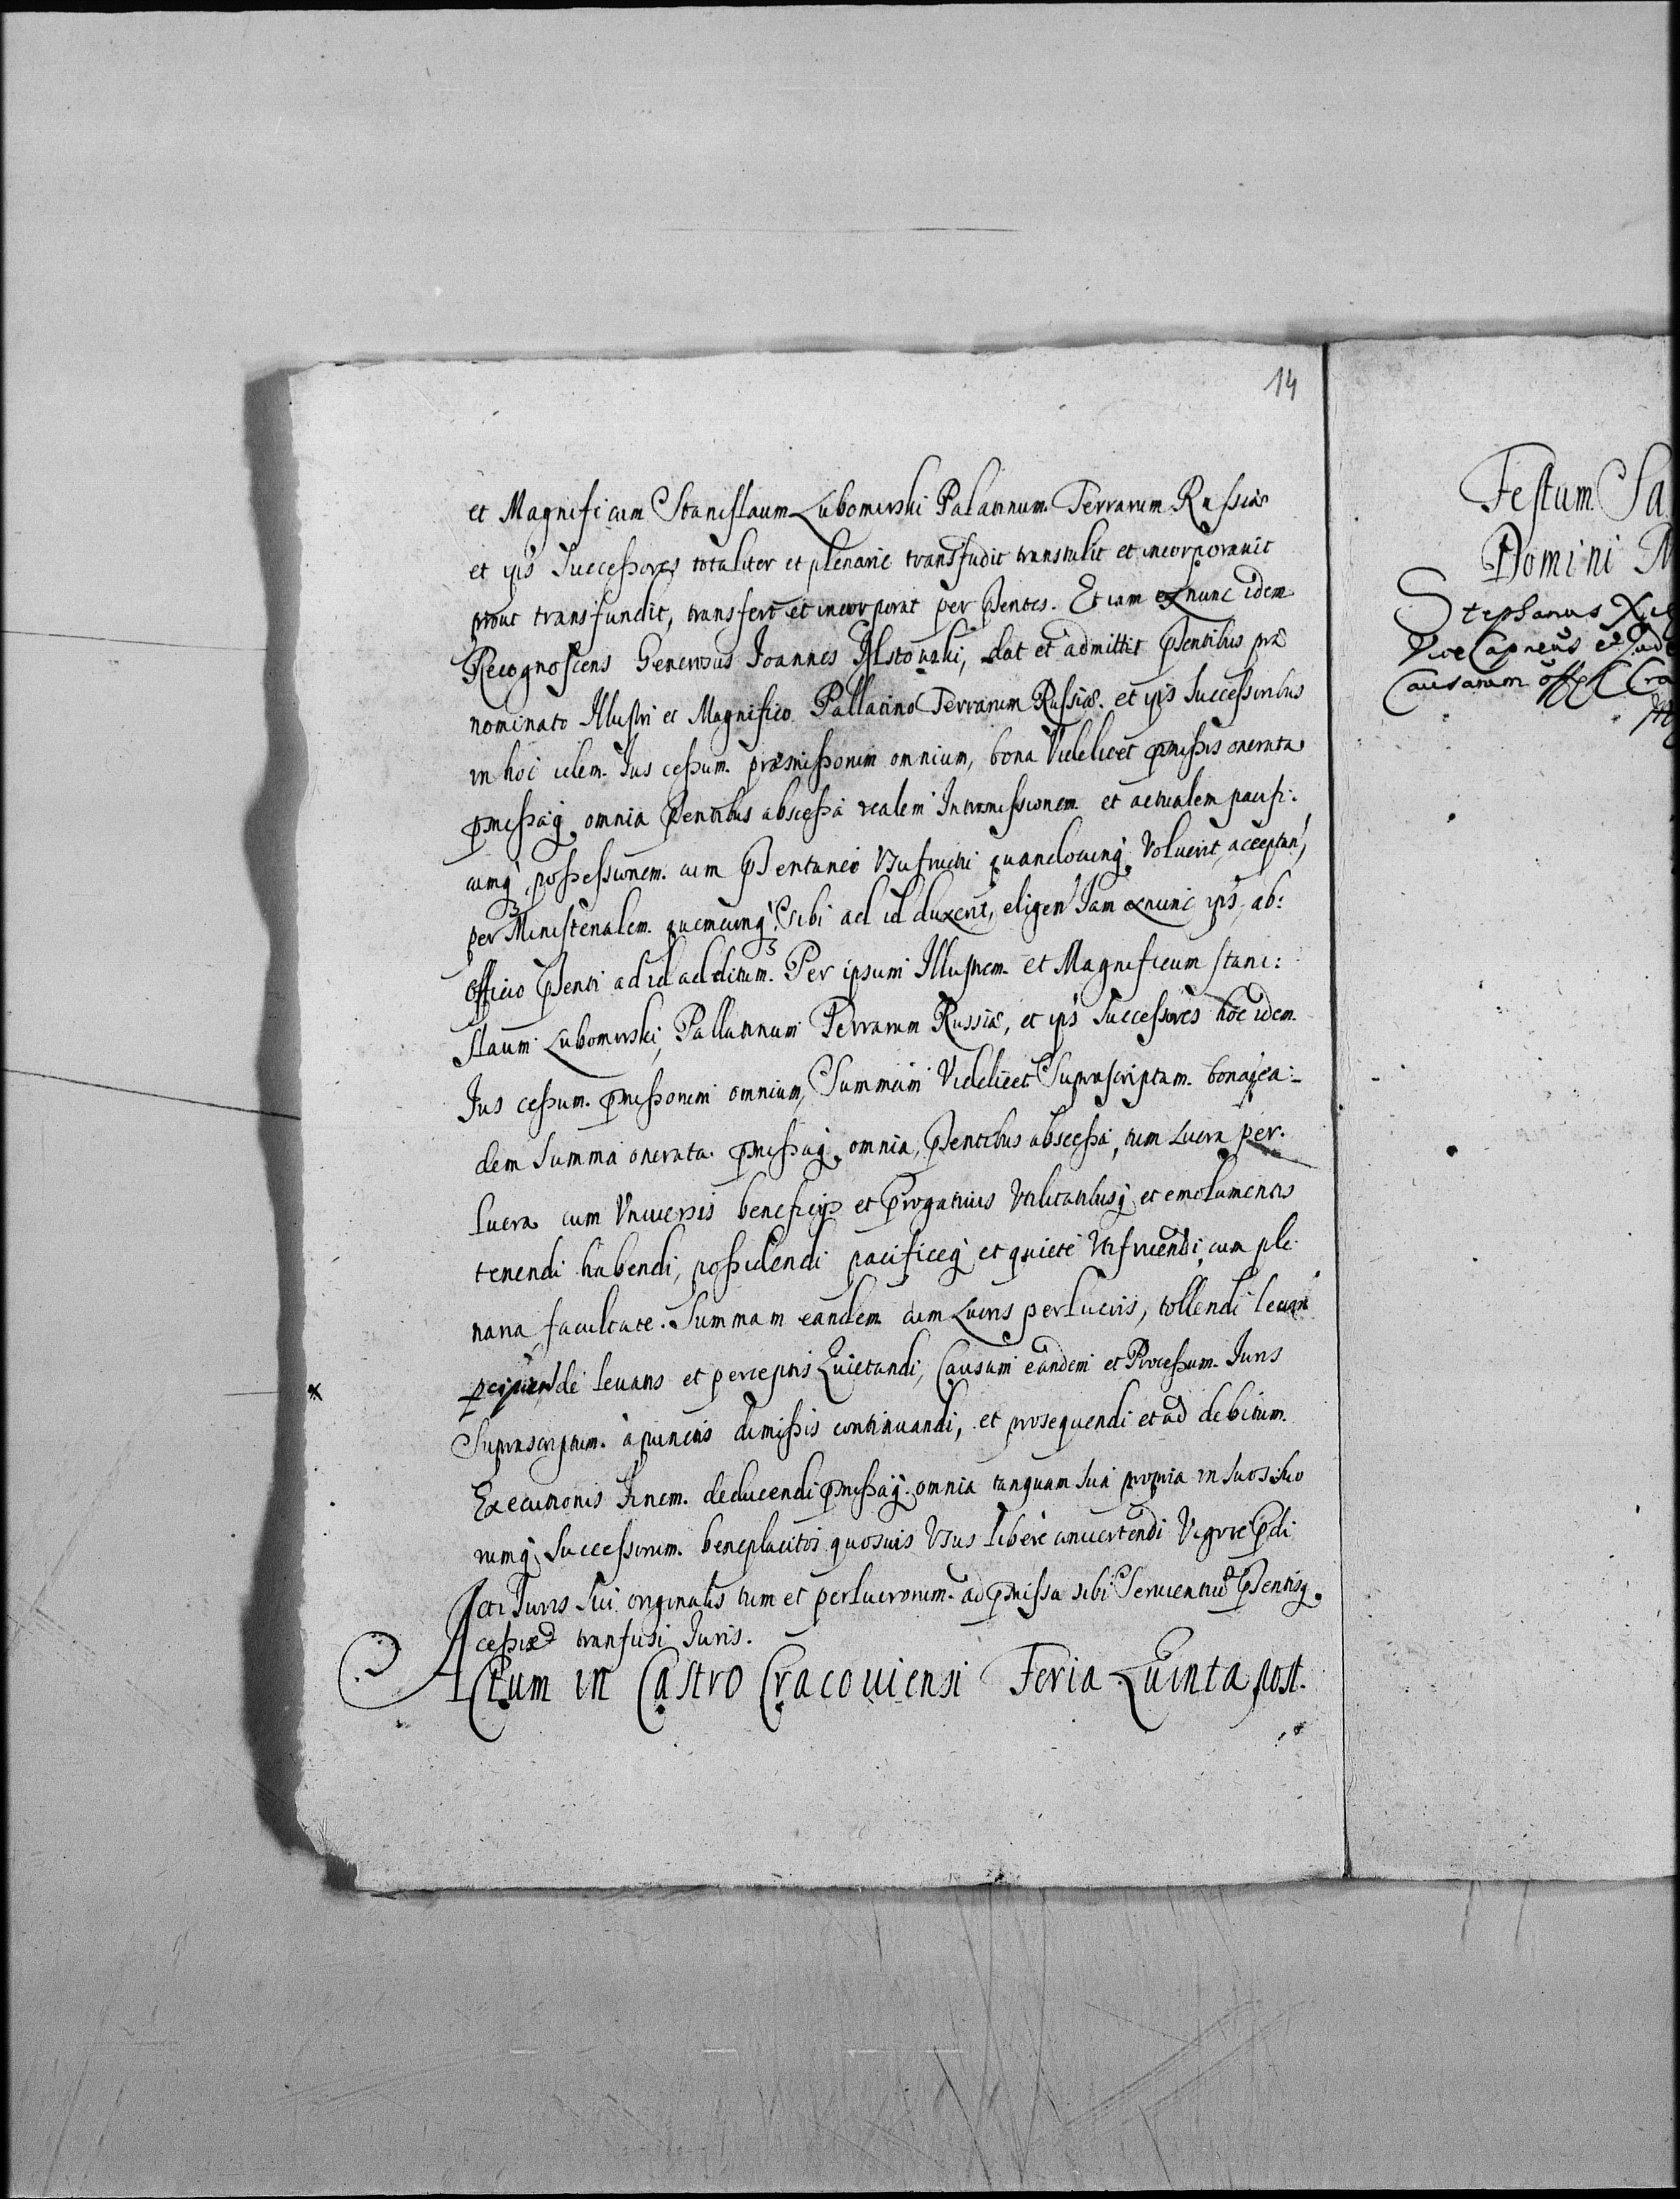 14
et Magnificum Stanislaum Lubomirski Palatinum Terrarum Russiæ
et ips Successores totaliter et plenarie transfudit transtulit et incorporauit
prout transfundit, transfert et incorporat per pñtes. Et iam ex nunc idem
Recognoscens Generosus Joannes dat et admittit pñtibus præ
nominato Illustri et Magnifico Pallatino Terrarum Russiæ et ips Successoribus
in hoc idem Jus cessum præmissorum omnium, bona Videlicet pmissis onerata
pmissaq omnia pñtibus abscessa realem Intromissionem et actualem pacifi:
cumq possessionem cum Vsufructu quandocunq Voluerit, acceptan,
per Ministerialem quemcunq Sibi ad id duxerit, eligen Jam ex nunc ips ab:
officio pñti ad id additum. Per ipsum Illustrem et Magnificum Stani:
slaum Lubomirski, Pallatinum Terrarum Russiæ, et ips Successores hoc idem
Jus cessum pmissorum omnium, Summam Videlicet Suprascriptam bonaq ea:
dem Summa onerata pmissaq omnia, pñtibus abscessa, tum Lucra per.
lucra cum Vniuersis beneficijs et Prrogatiuis Vtilitatibusq et emolumentis
tenendi habendi, possidendi pacificeq et quiete Vtifruendi, cum ple
naria facultate. Summam eandem cum Lucris perlucris, tollendi leuan
pcipiendi leuatis et perceptis Quietandi, Causam eandem et Processum Juris
Suprascriptum à punctis dimissis continuandi, et prosequendi et ad debitum
Executionis finem deducendi pmissaq omnia tanquam sua propria in suos suo
rumq Successorum beneplacitos quosuis Vsus libere conuertendi Vigore pdi
cti Juris Sui originalis tum et perlucrorum ad pmissa sibi Seruientium pñtisq
cessi et tranfusi Juris.
Actum in Castro Cracouiensi Feria Quinta post.
Festum Sa
Domini
Stephanus
Vice Capneus et Jud
Causarum offi Cra